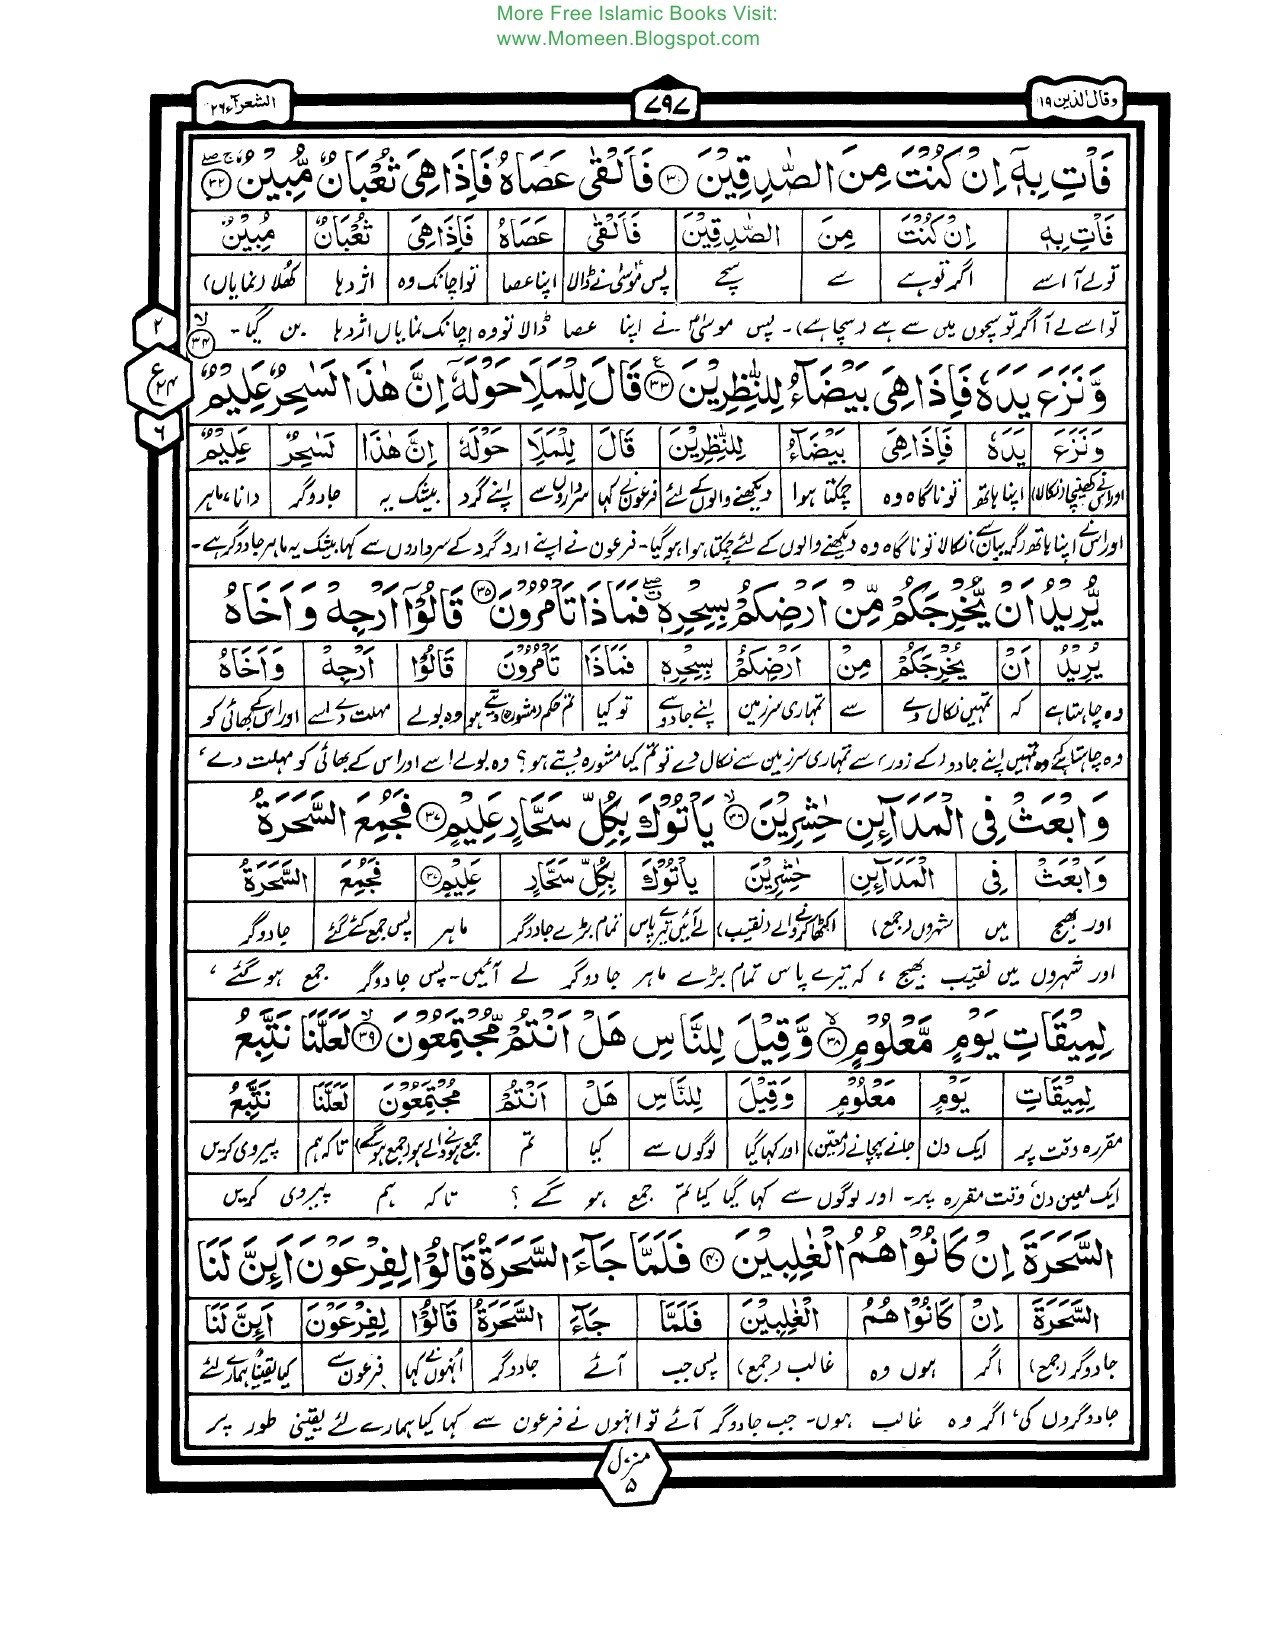 More Free Islamic Books Visit:
www.Momeen.Blogspot.com
وقال الذین ۱۹
۷۹۷
الشعرآء ۲۶
فَاْتِ بِهٖۤ اِنْ كُنْتَ مِنَ الصّٰدِقِیْنَ ﴿۳۱﴾ فَاَلْقٰی عَصَاهُ فَاِذَا هِیَ ثُعْبَانٌ مُّبِیْنٌ ﴿۳۲﴾
فَاْتِ بِهٖ اِنْ كُنْتَ مِنَ الصّٰدِقِیْنَ فَاَلْقٰی عَصَاهُ فَاِذَا هِیَ ثُعْبَانٌ مُبِیْنٌ
تو لے آ اسے اگر تو ہے سے سچے پس موسیٰؑ نے ڈالا اپنا عصا تو اچانک وہ اژدہا کھلا (نمایاں)
تو اسے لے آ اگر تو سچوں میں سے ہے (سچا ہے)۔ پس موسیٰؑ نے اپنا عصا ڈالا تو وہ اچانک نمایاں اژدہا بن گیا۔
۲
ع
۲۴
۶
وَّ نَزَعَ یَدَهٗ فَاِذَا هِیَ بَیْضَآءُ لِلنّٰظِرِیْنَ ﴿۳۳﴾ قَالَ لِلْمَلَاِ حَوْلَهٗۤ اِنَّ هٰذَا لَسٰحِرٌ عَلِیْمٌ ﴿۳۴﴾
وَنَزَعَ یَدَهٗ فَاِذَا هِیَ بَیْضَآءُ لِلنّٰظِرِیْنَ قَالَ لِلْمَلَاِ حَوْلَهٗ اِنَّ هٰذَا لَسٰحِرٌ عَلِیْمٌ
اور اس نے کھینچا (نکالا) اپنا ہاتھ تو ناگاہ وہ چمکتا ہوا دیکھنے والوں کے لئے فرعون نے کہا سرداروں سے اپنے گرد بیشک یہ جادوگر دانا، ماہر
اور اس نے اپنا ہاتھ (گریبان سے) نکالا تو ناگاہ وہ دیکھنے والوں کے لئے چمکتا ہوا ہو گیا۔ فرعون نے اپنے ارد گرد کے سرداروں سے کہا بیشک یہ ماہر جادوگر ہے۔
یُّرِیْدُ اَنْ یُّخْرِجَكُمْ مِّنْ اَرْضِكُمْ بِسِحْرِهٖ فَمَاذَا تَاْمُرُوْنَ ﴿۳۵﴾ قَالُوْۤا اَرْجِهْ وَ اَخَاهُ
یُرِیْدُ اَنْ یُخْرِجَكُمْ مِنْ اَرْضِكُمْ بِسِحْرِهٖ فَمَاذَا تَاْمُرُوْنَ قَالُوْا اَرْجِهْ وَاَخَاهُ
وہ چاہتا ہے کہ تمہیں نکال دے سے تمہاری سرزمین اپنے جادو سے تو کیا تم حکم (مشورہ) دیتے ہو وہ بولے مہلت دے اسے اور اس کے بھائی کو
وہ چاہتا ہے کہ وہ تمہیں اپنے جادو (کے زور) سے تمہاری سرزمین سے نکال دے تو تم کیا مشورہ دیتے ہو؟ وہ بولے اسے اور اس کے بھائی کو مہلت دے،
وَ ابْعَثْ فِی الْمَدَآئِنِ حٰشِرِیْنَ ﴿۳۶﴾ یَاْتُوْكَ بِكُلِّ سَحَّارٍ عَلِیْمٍ ﴿۳۷﴾ فَجُمِعَ السَّحَرَةُ
وَابْعَثْ فِی الْمَدَآئِنِ حٰشِرِیْنَ یَاْتُوْكَ بِكُلِّ سَحَّارٍ عَلِیْمٍ ﴿۳۷﴾ فَجُمِعَ السَّحَرَةُ
اور بھیج میں شہروں (جمع) اکٹھا کرنے والے (نقیب) لے آئیں تیرے پاس تمام بڑے جادوگر ماہر پس جمع کئے گئے جادوگر
اور شہروں میں نقیب بھیج، کہ تیرے پاس تمام بڑے ماہر جادوگر لے آئیں۔ پس جادوگر جمع ہو گئے،
لِمِیْقَاتِ یَوْمٍ مَّعْلُوْمٍ ﴿۳۸﴾ وَّ قِیْلَ لِلنَّاسِ هَلْ اَنْتُمْ مُّجْتَمِعُوْنَ ﴿۳۹﴾ لَعَلَّنَا نَتَّبِعُ
لِمِیْقَاتِ یَوْمٍ مَعْلُوْمٍ وَقِیْلَ لِلنَّاسِ هَلْ اَنْتُمْ مُجْتَمِعُوْنَ لَعَلَّنَا نَتَّبِعُ
مقررہ وقت پر ایک دن جانے پہچانے (معین) اور کہا گیا لوگوں سے کیا تم جمع ہونے والے ہو (جمع ہوگے) تاکہ ہم پیروی کریں
ایک معین دن، وقت مقررہ پر۔ اور لوگوں سے کہا گیا کیا تم جمع ہو گے؟ تاکہ ہم پیروی کریں
السَّحَرَةَ اِنْ كَانُوْا هُمُ الْغٰلِبِیْنَ ﴿۴۰﴾ فَلَمَّا جَآءَ السَّحَرَةُ قَالُوْا لِفِرْعَوْنَ اَئِنَّ لَنَا
السَّحَرَةَ اِنْ كَانُوْا هُمُ الْغٰلِبِیْنَ فَلَمَّا جَآءَ السَّحَرَةُ قَالُوْا لِفِرْعَوْنَ اَئِنَّ لَنَا
جادوگر (جمع) اگر ہوں وہ غالب (جمع) پس جب آئے جادوگر انہوں نے کہا فرعون سے کیا یقیناً ہمارے لئے
جادوگروں کی، اگر وہ غالب ہوں۔ جب جادوگر آئے تو انہوں نے فرعون سے کہا کیا ہمارے لئے یقینی طور پر
منزل ۵